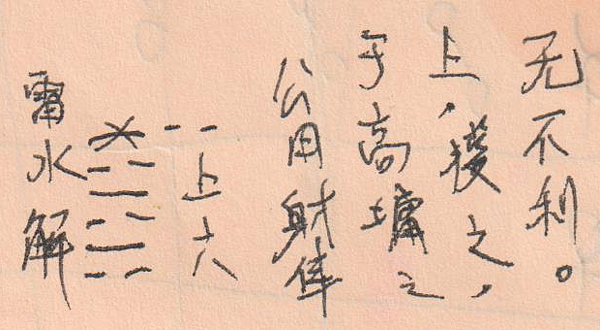 雷水解
上六
公用射隼
于高墉之
上，獲之，
无不利。